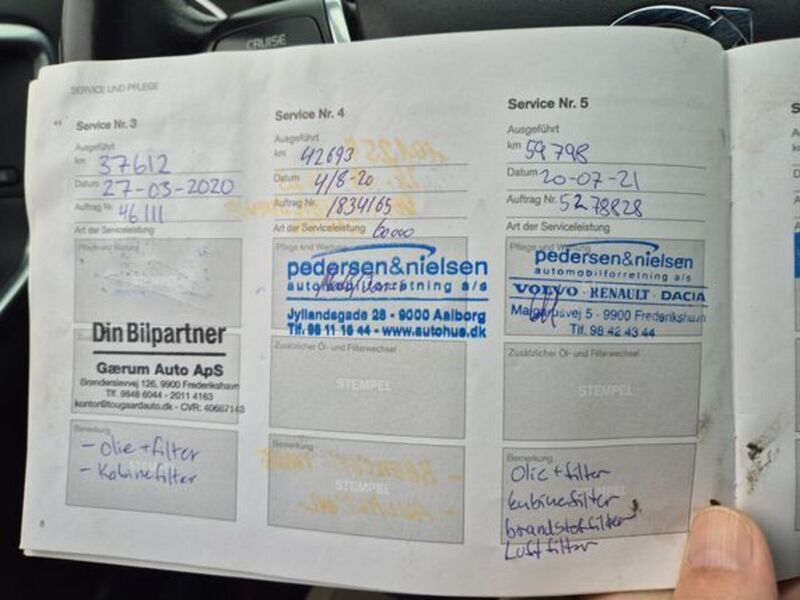 CRUISE
SERVICE UND PFLEGE
Service Nr. 3
Ausgeführt
km 37612
Datum 27-03-2020
Auftrag Nr. 46111
Art der Serviceleistung
Pflege und Wartung
Din Bilpartner
Gærum Auto ApS
Brønderslevvej 126, 9900 Frederikshavn
Tlf. 9846 6044 - 2011 4163
kontor@tougaardauto.dk - CVR: 40667143
Bemerkung
- Olie + filter
- Kabinefilter
8
Service Nr. 4
Ausgeführt
km 42693
Datum 4/8-20
Auftrag Nr. 1834165
Art der Serviceleistung 60000
Pflege und Wartung
pedersen&nielsen
automobilforretning a/s
Jyllandsgade 28 - 9000 Aalborg
Tlf. 98 11 16 44 - www.autohus.dk
Zusätzlicher Öl- und Filterwechsel
STEMPEL
Bemerkung
STEMPEL
Service Nr. 5
Ausgeführt
km 59798
Datum 20-07-21
Auftrag Nr. 5278828
Art der Serviceleistung
Pflege und Wartung
pedersen&nielsen
automobilforretning a/s
VOLVO · RENAULT · DACIA
Frederikshavn
Tlf. 98 42 43 44
Zusätzlicher Öl- und Filterwechsel
STEMPEL
Bemerkung
Olie + filter
kabinefilter
brandstoffilter
Luftfilter
S